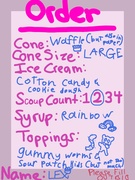 Order
Cone: Waffle (but also in paper)
Cone Size: LARGE
Ice Cream:
Cotton candy &
cookie dough
Scoup Count: 1 2 3 4
Syrup: Rainbow
Toppings:
gummy worms &
Sour Patch kids (but not
Name: LEO
Please Fill